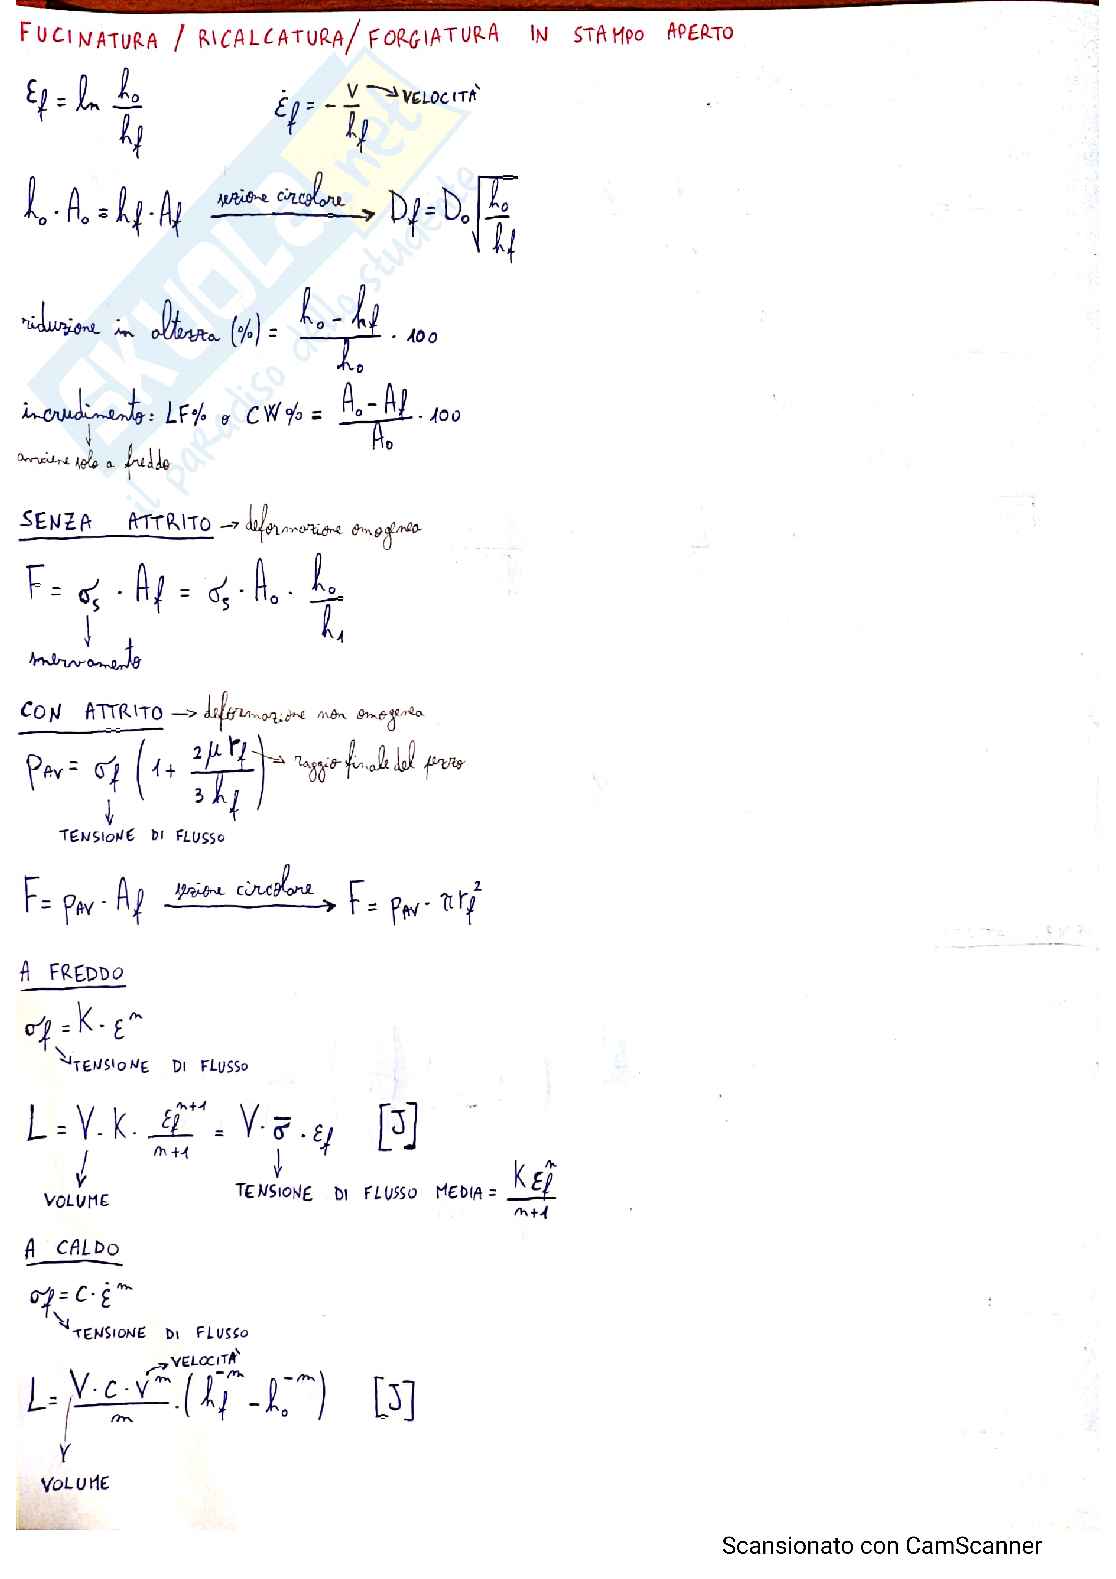 FUCINATURA / RICALCATURA / FORGIATURA IN STAMPO APERTO
εf = ln h₀/hf    ε̇f = - v/hf → VELOCITÀ
h₀ · A₀ = hf · Af  sezione circolare →  Df = D₀ √(h₀/hf)
riduzione in altezza (%) = (h₀ - hf)/h₀ · 100
incrudimento: LF% o CW% = (A₀ - Af)/A₀ · 100
avviene solo a freddo
SENZA ATTRITO → deformazione omogenea
F = σs · Af = σs · A₀ · h₀/h₁
snervamento
CON ATTRITO → deformazione non omogenea
PAV = σf (1 + 2μrf/3hf) → raggio finale del pezzo
TENSIONE DI FLUSSO
F = PAV · Af  sezione circolare →  F = PAV · πrf²
A FREDDO
σf = K · εⁿ
TENSIONE DI FLUSSO
L = V · K · εfⁿ⁺¹/(n+1) = V · σ̄ · εf  [J]
VOLUME    TENSIONE DI FLUSSO MEDIA = Kεfⁿ/(n+1)
A CALDO
σf = C · ε̇ᵐ
TENSIONE DI FLUSSO
→ VELOCITÀ
L = (V · C · vᵐ)/m · (hf⁻ᵐ - h₀⁻ᵐ)  [J]
VOLUME
SKUOLA.net
il paradiso dello studente
Scansionato con CamScanner